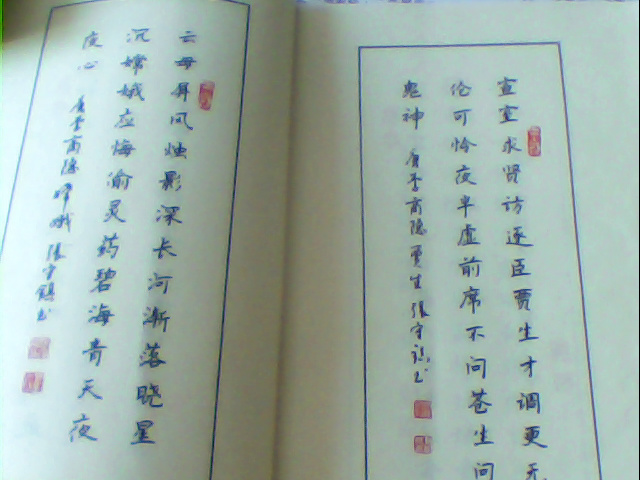 宣室求贤访逐臣贾生才调更无
伦可怜夜半虚前席不问苍生问
鬼神 唐李商隐 贾生 張守镇书
云母屏风烛影深长河渐落晓星
沉嫦娥应悔偷灵药碧海青天夜
夜心 唐李商隐嫦娥 張守鎮书